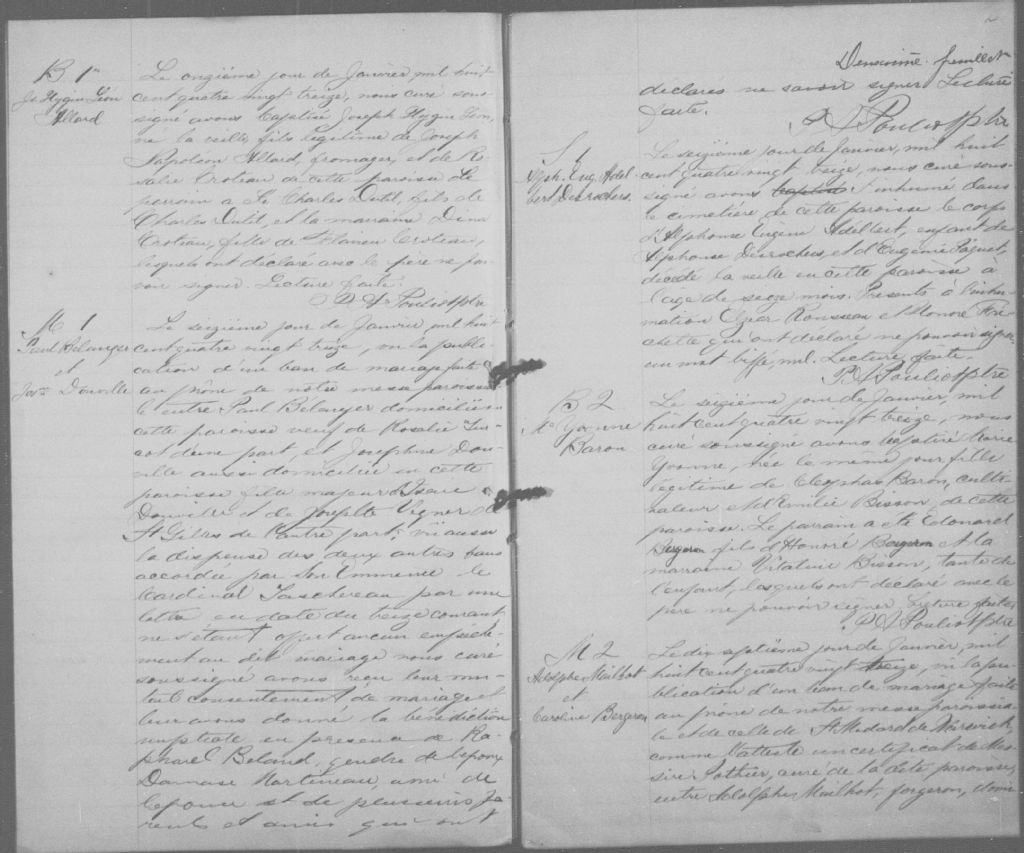 B 1
Js Hygin Léon
Allard
Le onzième jour de Janvier, mil huit
cent quatre vingt treize, nous curé sous-
signé avons baptisé Joseph Hygin Léon,
né la veille, fils légitime de Joseph
Napoléon Allard, fromager, et de Ro-
salie Croteau de cette paroisse. Le
parrain a été Charles Dutil, fils de
Charles Dutil, et la marraine Dina
Croteau, fille de Croteau,
lesquels ont déclaré avec le père ne pou-
voir signer. Lecture faite.
Pouliot Ptre
M 1
Paul Bélanger
et
Josne Douville
Le seizième jour de Janvier, mil huit
cent quatre vingt treize, vu la publi-
cation d'un ban de mariage faite
au prône de notre messe paroissia-
le entre Paul Bélanger domicilié en
cette paroisse veuf de Rosalie Tur-
cot d'une part, et Josephine Dou-
ville aussi domiciliée en cette
paroisse fille majeure d'Isaie
Douville et de Josephte Vigner de
St Gilles de l'autre part; vu aussi
la dispense des deux autres bans
accordée par Son Eminence le
Cardinal Taschereau par une
lettre en date du treize courant
ne s'étant offert aucun empêche-
ment au dit mariage nous curé
soussigné avons reçu leur mu-
tuel consentement de mariage et
leur avons donné la bénédiction
nuptiale en présence de Ra-
phael Beland, gendre de l'époux
Damase Martineau, ami de
l'époux et de plusieurs pa-
rents et amis qui ont
Deuxième feuillet
déclarés ne savoir signer Lecture
faite.
Pouliot Ptre
S 1
Alph. Eug. Adel-
bert Desrochers.
Le seizième jour de Janvier, mil huit
cent quatre vingt treize, nous curé sous-
signé avons baptisé inhumé dans
le cimetière de cette paroisse le corps
d'Alphonse Eugène Adelbert, enfant de
Alphonse Desrochers, et d'Eugénie Paquet,
décédé la veille en cette paroisse à
l'age de seize mois. Présents à l'inhu-
mation Elzéar Rousseau et Honoré Fré-
chette qui ont déclaré ne pouvoir signer
un mot biffé, nul. Lecture faite.
Pouliot Ptre
B 2
Me Yvonne
Baron
Le seizième jour de Janvier, mil
huit cent quatre vingt treize, nous
curé soussigné avons baptisé Marie
Yvonne, née le même jour fille
légitime de Cléophas Baron, culti-
vateur et d'Emilie Bisson, de cette
paroisse. Le parrain a été Edouard
Bergeron fils d'Honoré Bergeron et la
marraine Vitaline Bisson, tante de
l'enfant, lesquels ont déclaré avec le
père ne pouvoir signer Lecture faite
Pouliot Ptre
M 2
Adolphe Mailhot
et
Caroline Bergeron
Le dix septième jour de Janvier, mil
huit cent quatre vingt treize, vu la pu-
blication d'un ban de mariage faite
au prône de notre messe paroissia-
le et de celle de St Medard de Warwick,
comme l'atteste un certificat de Mes-
sire Pothier, curé de la dite paroisse,
entre Adolphe Mailhot, forgeron, domi-